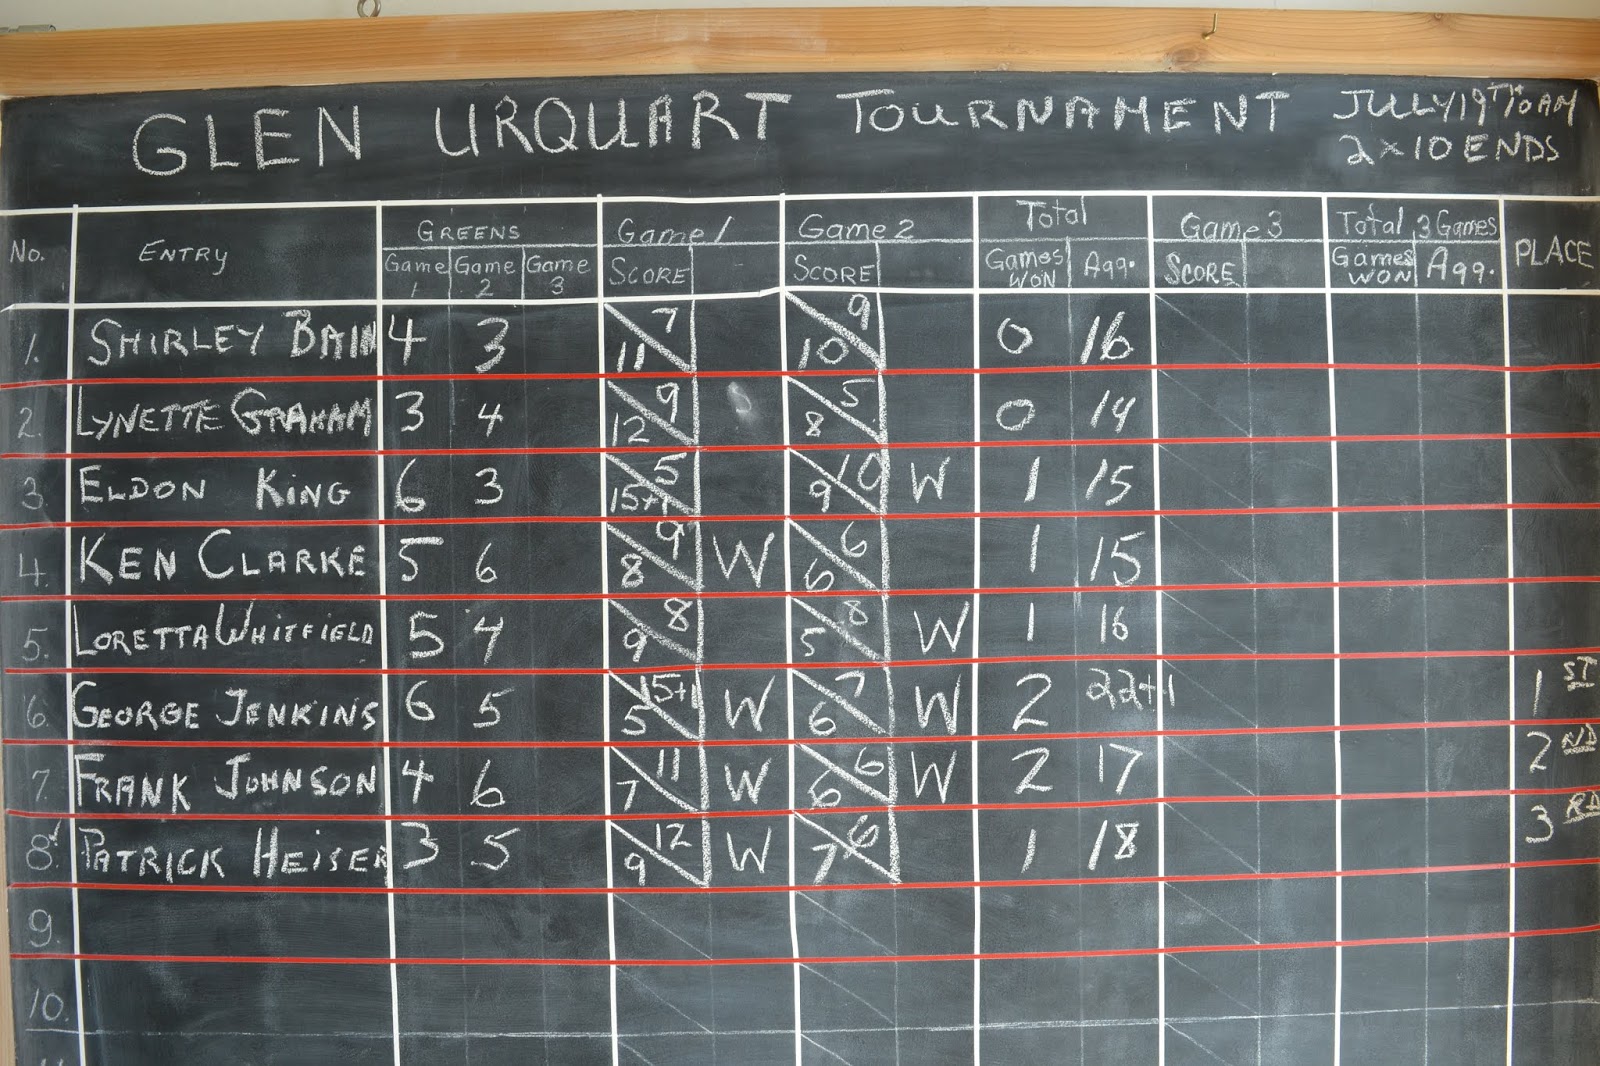 GLEN URQUART TOURNAMENT JULY 19TH 10 AM
2 x 10 ENDS
No. ENTRY GREENS Game 1 Game 2 Total Game 3 Total 3 Games PLACE
Game 1 Game 2 Game 3 SCORE SCORE Games WON Agg. SCORE Games WON Agg.
1. SHIRLEY BAIN 4 3 7 11 9 10 0 16
2. LYNETTE GRAHAM 3 4 9 12 5 8 0 14
3. ELDON KING 6 3 5 15+1 10 9 W 1 15
4. KEN CLARKE 5 6 9 8 W 6 6 1 15
5. LORETTA WHITFIELD 5 4 8 9 8 5 W 1 16
6. GEORGE JENKINS 6 5 15+1 5 W 7 6 W 2 22+1 1ST
7. FRANK JOHNSON 4 6 11 7 W 6 6 W 2 17 2ND
8. PATRICK HEISER 3 5 12 9 W 6 7 1 18 3RD
9.
10.